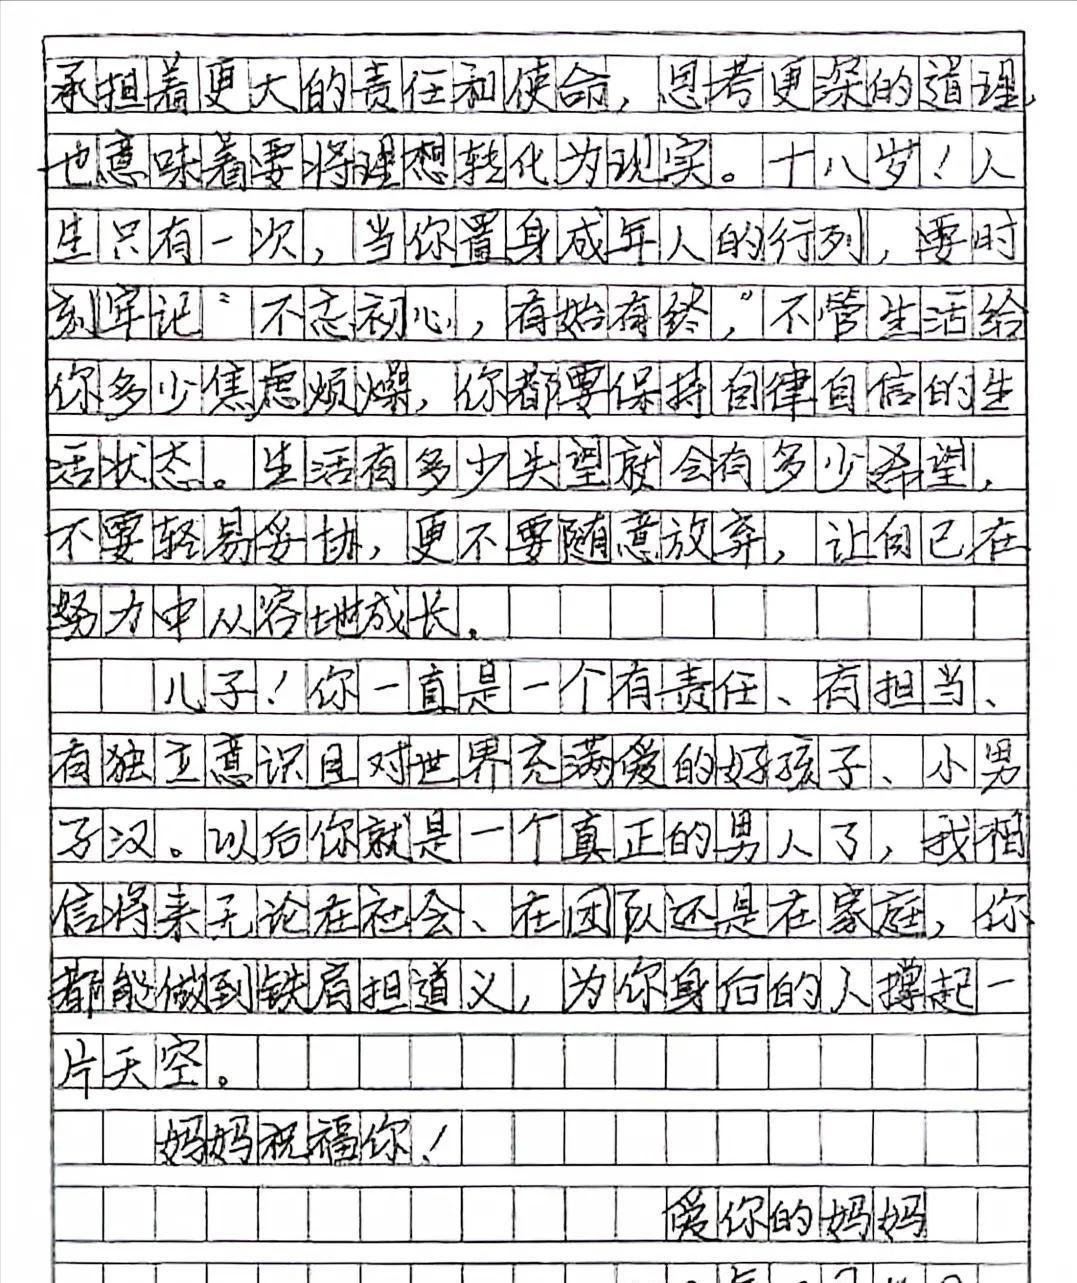 承担着更大的责任和使命，思考更深的道理，
也意味着要将理想转化为现实。十八岁！人
生只有一次，当你置身成年人的行列，要时
刻牢记“不忘初心，有始有终，”不管生活给
你多少焦虑烦燥，你都要保持自律自信的生
活状态。生活有多少失望就会有多少希望，
不要轻易妥协，更不要随意放弃，让自己在
努力中从容地成长。
儿子！你一直是一个有责任、有担当、
有独立意识且对世界充满爱的好孩子、小男
子汉。以后你就是一个真正的男人了，我相
信将来无论在社会、在团队还是在家庭，你
都能做到铁肩担道义，为你身后的人撑起一
片天空。
妈妈祝福你！
爱你的妈妈